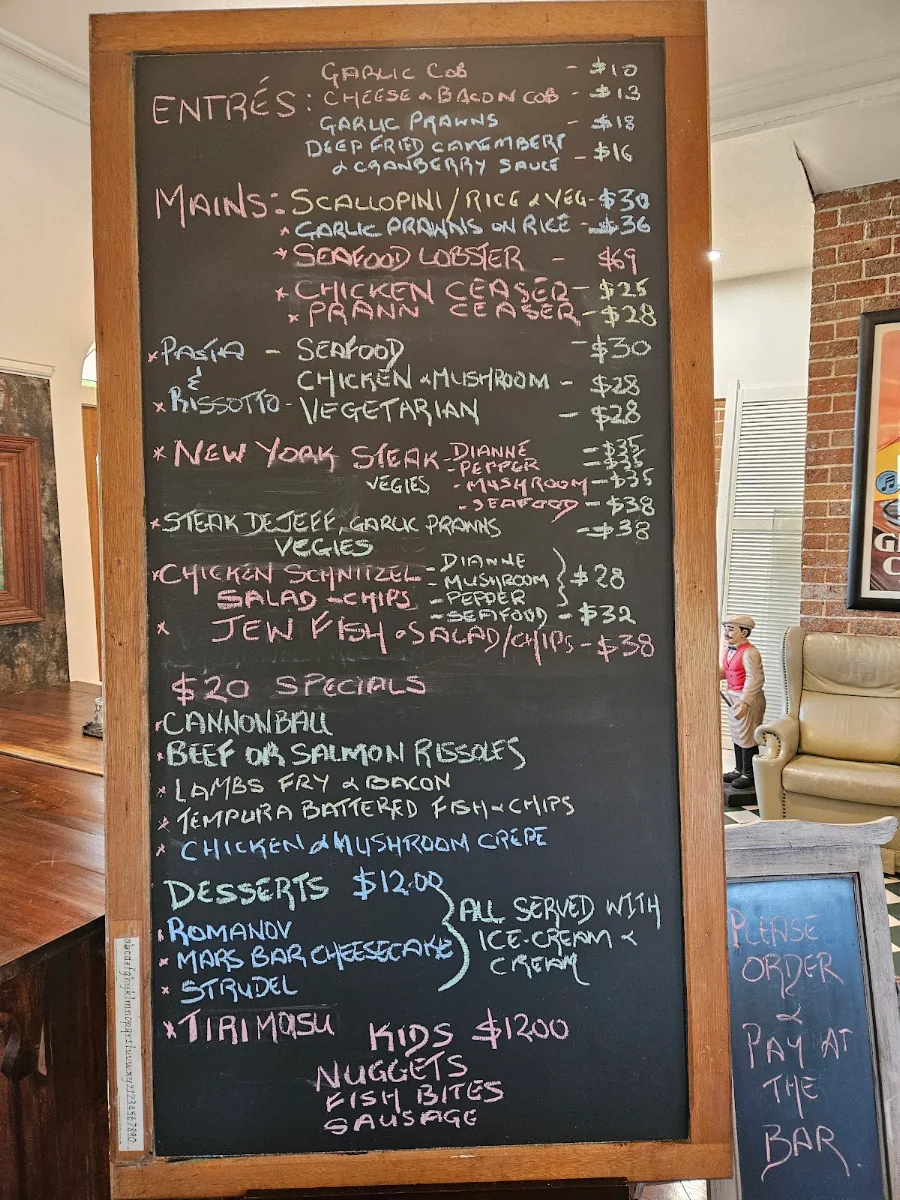 GARLIC COB - $10
ENTRÉS: CHEESE & BACON COB - $13
GARLIC PRAWNS - $18
DEEP FRIED CAMEMBERT
& CRANBERRY SAUCE - $16
MAINS: SCALLOPINI/RICE & VEG - $30
* GARLIC PRAWNS ON RICE - $36
* SEAFOOD LOBSTER - $69
* CHICKEN CEASER - $25
* PRANN CEASER - $28
* PASTA - SEAFOOD - $30
& CHICKEN & MUSHROOM - $28
* RISSOTTO - VEGETARIAN - $28
* NEW YORK STEAK - DIANNE - $35
- PEPPER - $35
VEGIES - MUSHROOM - $35
- SEAFOOD - $38
* STEAK DE JEFF, GARLIC PRAWNS - $38
VEGIES
* CHICKEN SCHNITZEL - DIANNE
- MUSHROOM } $28
SALAD - CHIPS - PEPPER
- SEAFOOD - $32
* JEW FISH & SALAD/CHIPS - $38
$20 SPECIALS
* CANNONBALL
* BEEF OR SALMON RISSOLES
* LAMBS FRY & BACON
* TEMPURA BATTERED FISH & CHIPS
* CHICKEN & MUSHROOM CREPE
DESSERTS $12.00
* ROMANOV
* MARS BAR CHEESECAKE
* STRUDEL
} ALL SERVED WITH
ICE-CREAM &
CREAM
* TIRIMASU
KIDS $1200
NUGGETS
FISH BITES
SAUSAGE
abcdefghijklmnopqrstuvwxyz1234567890
PLEASE
ORDER
&
PAY AT
THE
BAR.